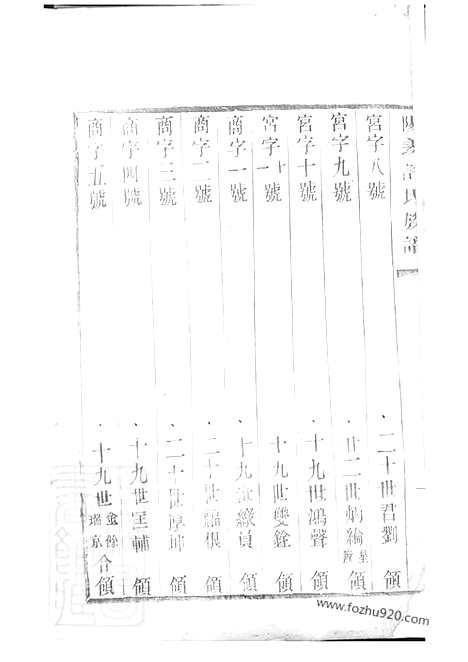 宮字八號 二十世君劉 領
宮字九號 廿二世炳綸 領
宮字十號 十九世鴻聲 領
宮字十一號 十九世雙銓 領
商字一號 十九世綬貞 領
商字二號 二十世 根 領
商字三號 二十世厚坤 領
商字四號 十九世匡輔 領
商字五號 十九世金餘瑞京合領
www.fozhu920.com